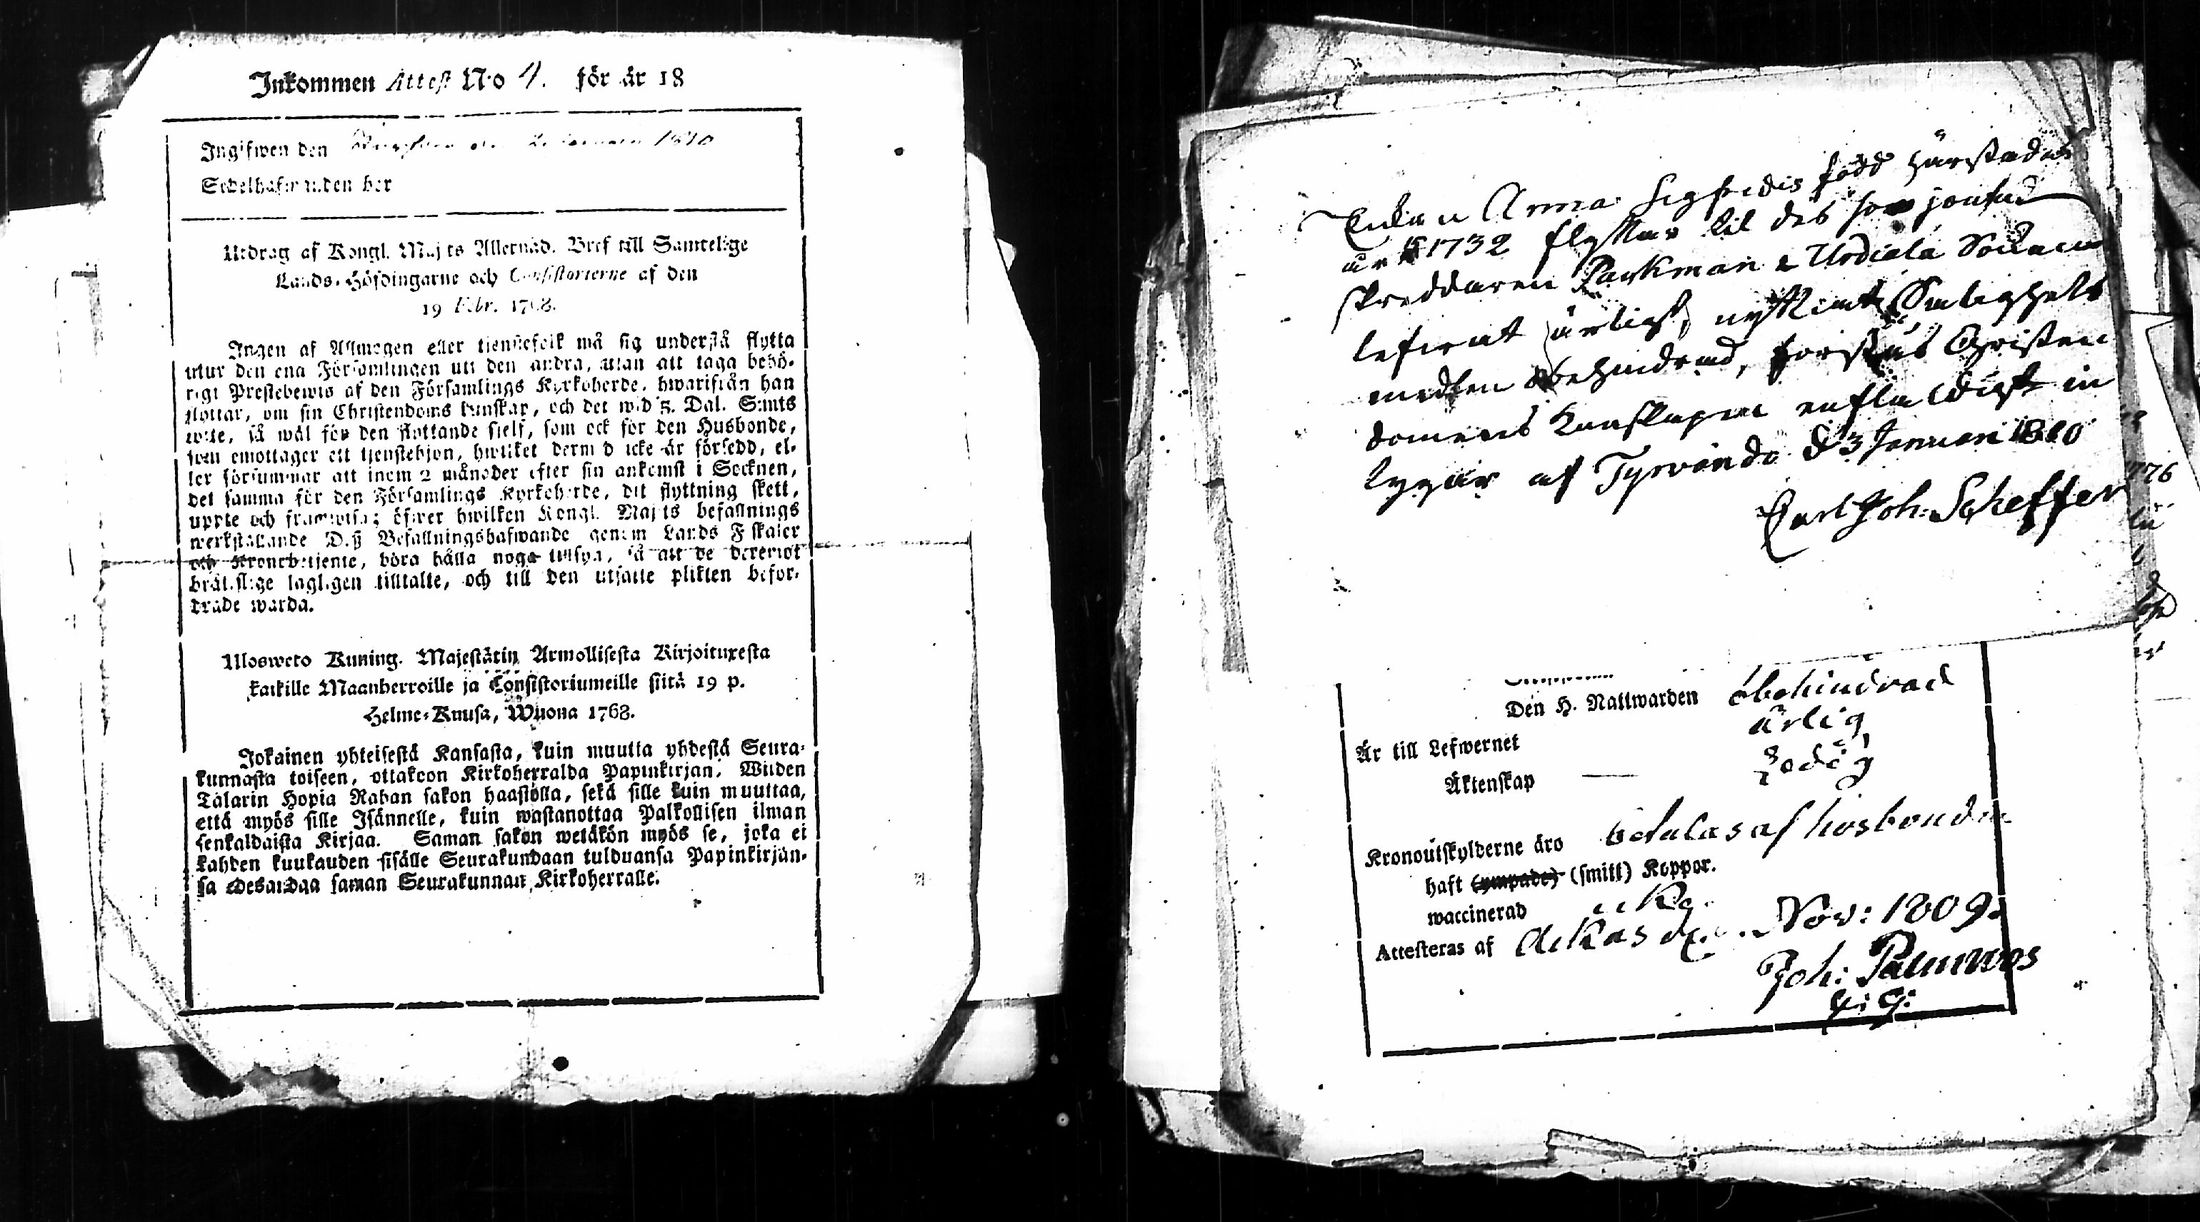 Inkommen Attest No 4. för år 18
Ingifwen den 1810
Sedelhafwanden bor
Utdrag af Kongl. Maj:ts Allernåd. Bref till Samtelige
Lands-Höfdingarne och Consistorierne af den
19 Febr. 1768.
Ingen af Allmogen eller tjenstefolk må sig understå flytta
utur den ena Församlingen uti den andra, utan att taga behö-
rigt Prestebewis af den Församlings Kyrkoherde, hwarifrån han
flyttar, om sin Christendoms kunskap, och det wid 3. Dal. S:mts
wite, så wäl för den flyttande sjelf, som ock för den Husbonde,
som emottager ett tjenstehjon, hwilket dermed icke är försedd, el-
ler försummar att inom 2 månader efter sin ankomst i Socknen,
det samma för den Församlings Kyrkoherde, dit flyttning skett,
uppte och framwisa; öfwer hwilken Kongl. Maj:ts befallnings
werkställande Deß Befallningshafwande genom Lands Fiskaler
och Kronobetjente, böra hålla noga tillsyn, så att de deremot
brätslige lagligen tilltalte, och till den utsatte plikten befor-
drade warda.
Ulosweto Kuning. Majestätin Armollisesta Kirjoituxesta
kaikille Maanherroille ja Consistoriumeille siitä 19 p.
Helme-Kuusa, Wuona 1768.
Jokainen yhteisestä Kansasta, kuin muutta yhdestä Seura-
kunnasta toiseen, ottakoon Kirkoherralda Papinkirjan, Wiiden
Talarin Hopia Rahan sakon haastolla, sekä sille kuin muuttaa,
että myös sille Isännelle, kuin wastanottaa Palkollisen ilman
senkaldaista Kirjaa. Saman sakon wetäkön myös se, joka ei
kahden kuukauden sisälle Seurakundaan tulduansa Papinkirjan-
sa edesandaa saman Seurakunnan Kirkoherralle.
Enkan Anna Sigfredis född härstädes
år 1732 flyttar til des
skreddaren Parkman i Urdiala Socken
lefwat ärligt, nyttiat Salighets
medlen obehindrad, förstår Christen
domens Kunskapen enfaldigt in
tygar af Tyrvändo d 3 Januari 1810
Carl Joh: Scheffer
Den H. Nattwarden obehindrad
Är till Lefwernet ärlig
Äktenskap — Ledig
Kronoutskylderne äro betalas af husbonden
haft (ympade) (smitt) Koppor.
waccinerad icke
Attesteras af Nov: 1809.
Joh: Palmroos